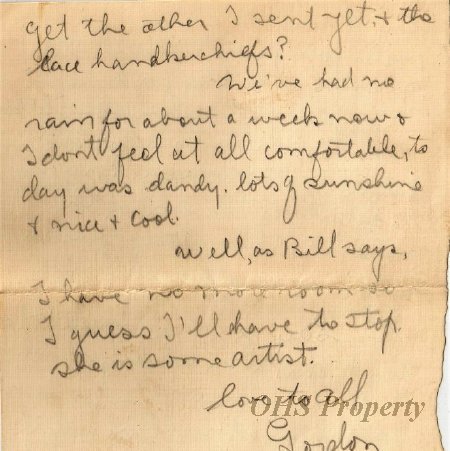 get the other I sent yet, & the
lace handkerchiefs?
We've had no
rain for about a week now &
I dont feel at all comfortable, to
day was dandy. lots of sunshine
& nice & cool.
Well, as Bill says,
I have no more room so
I guess I'll have to stop.
she is some artist.
love to all
OHS Property
Gordon